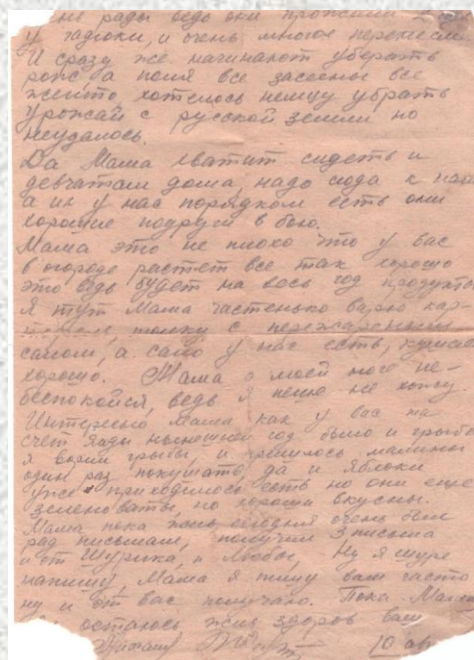 не рады ведь они прожили
у гадюки, и очень многое перенесли
И сразу же начинают убирать
рожь а поля все засеяны все
жито хотелось немцу убрать
Урожай с русской земли но
неудалось.
Да Мама хватит сидеть и
девчатам дома, надо сюда к
а их у нас порядком есть они
хорошие подруги в бою.
Мама это не плохо что у вас
в огороде растет все так хорошо
это ведь будет на весь год продукты
Я тут Мама частенько варю кар-
толку с пережаренным
салом, а сало у нас есть, кушаем
хорошо. Мама о моей ноге не-
беспокойся, ведь я пешо не хожу
Интересно Мама как у вас на-
счет яды нынешний год было и грибов
я варил грибы, и пришлось малины
один раз покушать, да и яблоки
уже приходилось есть но они еще
зеленоваты, но хороши вкусны.
Мама пока жив, сегодня очень был
рад письмам, получил 3 письма
и от Шурика, и Любы, Ну я Шуре
напишу, Мама я пишу вам часто
ну и от вас получаю. Пока Мама
остаюсь жив здоров ваш
10 ав